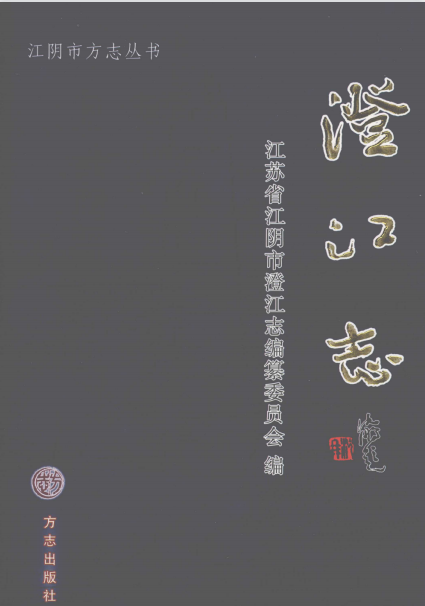 江阴市方志丛书
澄江志
江苏省江阴市澄江志编纂委员会 编
方志出版社